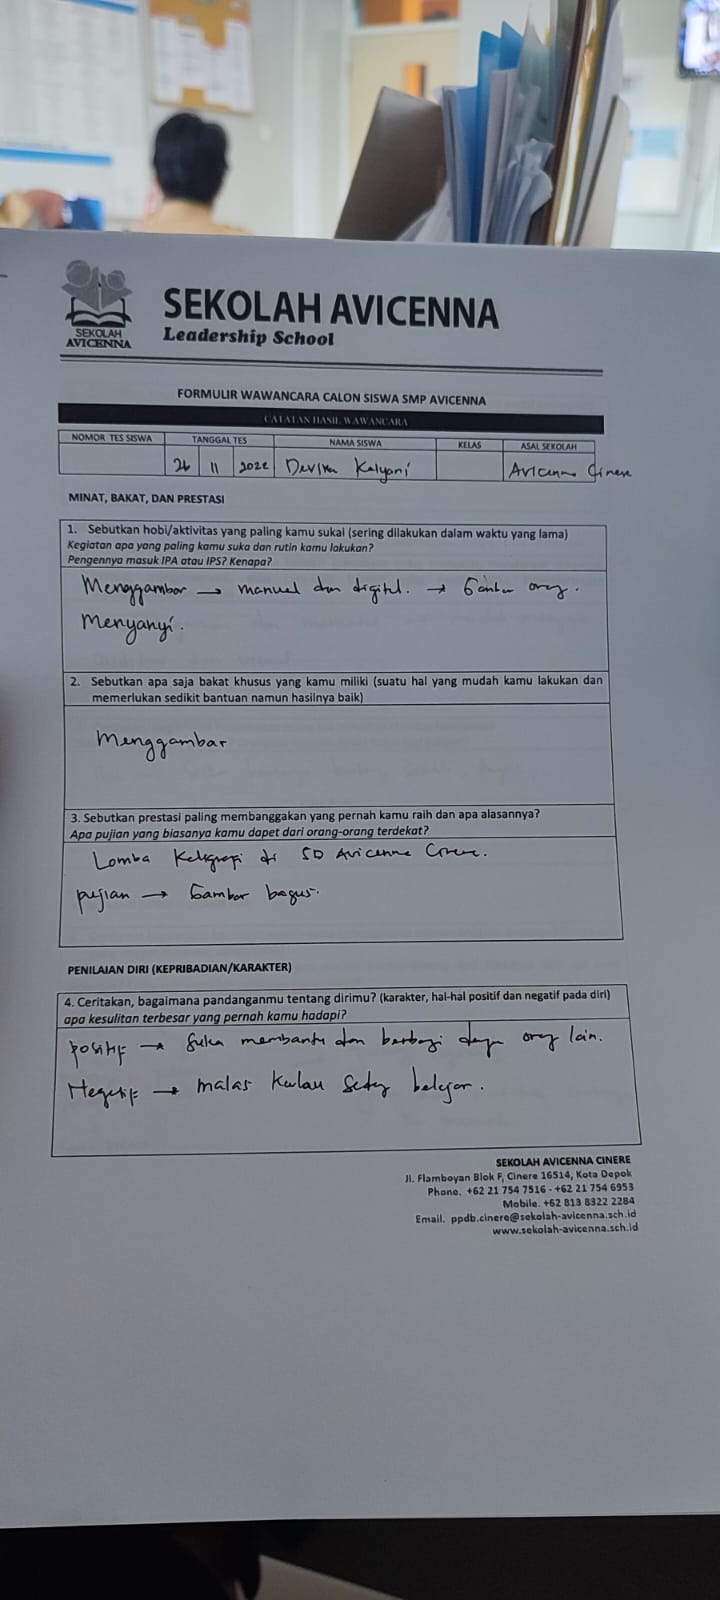 SEKOLAH
AVICENNA
SEKOLAH AVICENNA
Leadership School
FORMULIR WAWANCARA CALON SISWA SMP AVICENNA
CATATAN HASIL WAWANCARA
NOMOR TES SISWA TANGGAL TES NAMA SISWA KELAS ASAL SEKOLAH
26 11 2022 Devira Kalyani Avicenna Cinere
MINAT, BAKAT, DAN PRESTASI
1. Sebutkan hobi/aktivitas yang paling kamu sukai (sering dilakukan dalam waktu yang lama)
Kegiatan apa yang paling kamu suka dan rutin kamu lakukan?
Pengennya masuk IPA atau IPS? Kenapa?
Menggambar → manual dan digital. → Gambar orang.
Menyanyi.
2. Sebutkan apa saja bakat khusus yang kamu miliki (suatu hal yang mudah kamu lakukan dan
memerlukan sedikit bantuan namun hasilnya baik)
Menggambar
3. Sebutkan prestasi paling membanggakan yang pernah kamu raih dan apa alasannya?
Apa pujian yang biasanya kamu dapet dari orang-orang terdekat?
Lomba Kaligrafi di SD Avicenna Cinere.
pujian → Gambar bagus.
PENILAIAN DIRI (KEPRIBADIAN/KARAKTER)
4. Ceritakan, bagaimana pandanganmu tentang dirimu? (karakter, hal-hal positif dan negatif pada diri)
apa kesulitan terbesar yang pernah kamu hadapi?
Positif → Suka membantu dan berbagi dengan orang lain.
Negatif → malas kalau sedang belajar.
SEKOLAH AVICENNA CINERE
Jl. Flamboyan Blok F, Cinere 16514, Kota Depok
Phone. +62 21 754 7516 - +62 21 754 6953
Mobile. +62 813 8322 2284
Email. ppdb.cinere@sekolah-avicenna.sch.id
www.sekolah-avicenna.sch.id